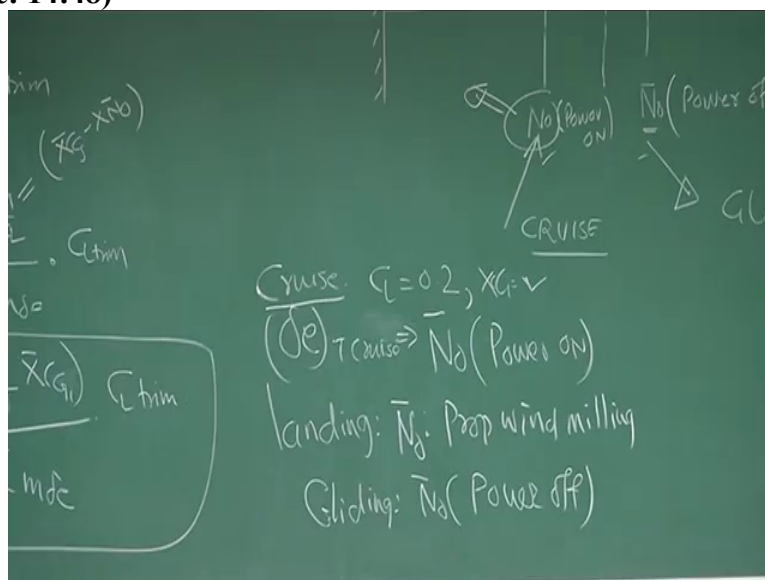 (X̄CG - X̄N0)
CLtrim
X̄CG) CLtrim
mδe
N0 (Power ON)
N̄0 (Power off
CRUISE
GL
Cruise. CL=0.2, XCG=✓
(δe)T cruise ⇒ N̄0 (Power ON)
landing: N̄0: Prop wind milling
Gliding: N̄0 (Power off)